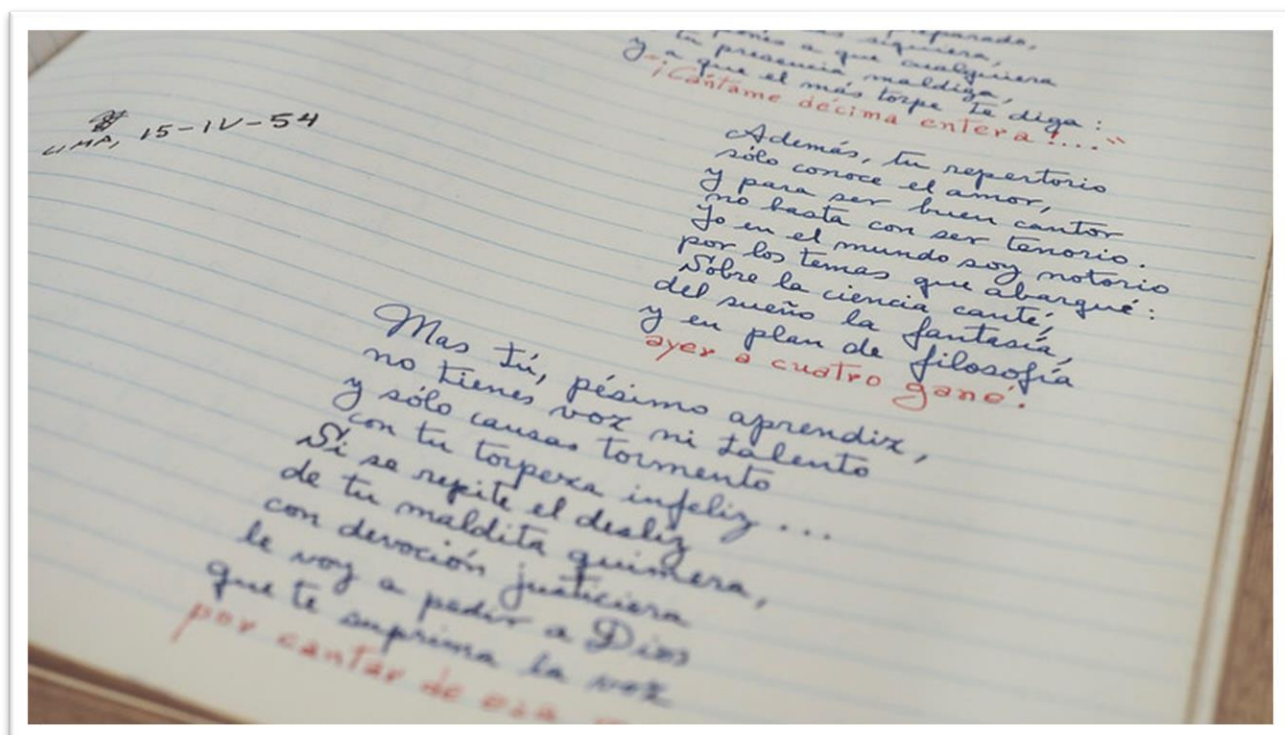 siquiera,
a que cualquiera
tu presencia maldiga,
y a que el más torpe te diga:
"¡Cántame décima entera!..."
LIMA, 15-IV-54
Además, tu repertorio
sólo conoce el amor,
y para ser buen cantor
no basta con ser tenorio.
Yo en el mundo soy notorio
por los temas que abarqué:
Sobre la ciencia canté,
del sueño la fantasía,
y en plan de filosofía
ayer a cuatro gané.
Mas tú, pésimo aprendiz,
no tienes voz ni talento
y sólo causas tormento
con tu torpeza infeliz...
Si se repite el desliz
de tu maldita quimera,
con devoción justiciera
le voy a pedir a Dios
que te suprima la voz
por cantar de esa